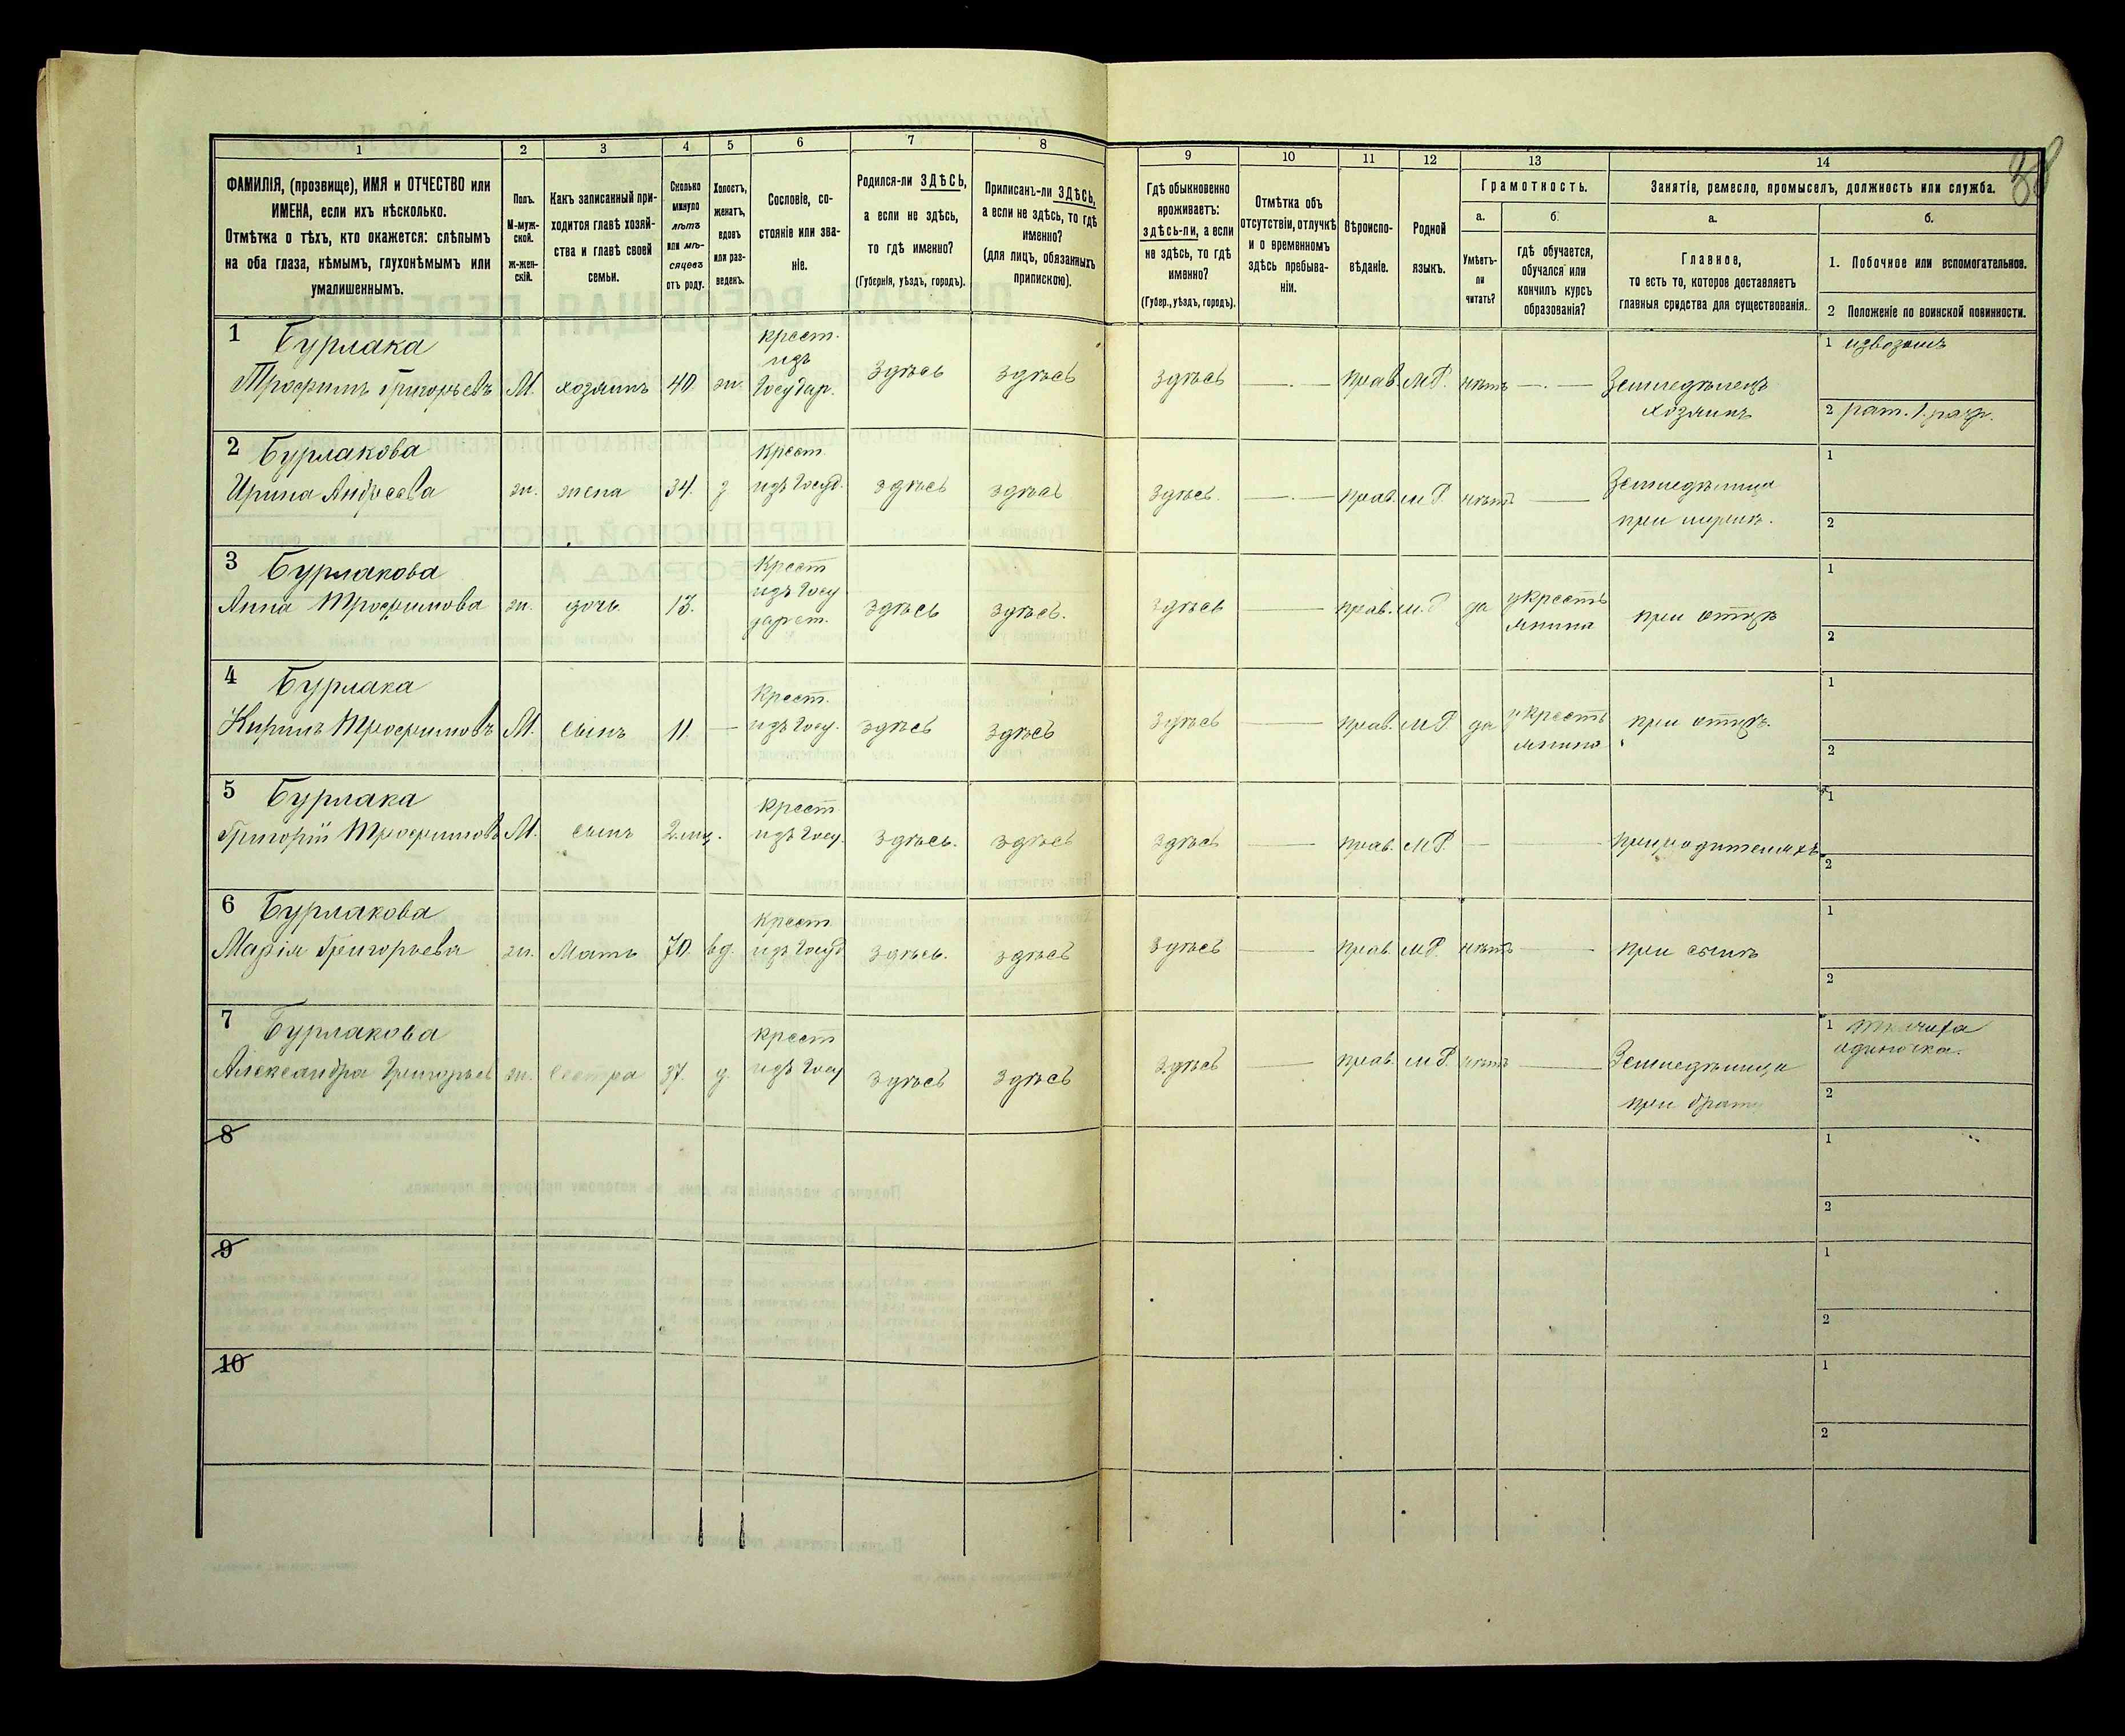 38
1
2
3
4
5
6
7
8
ФАМИЛІЯ, (прозвище), ИМЯ и ОТЧЕСТВО или
ИМЕНА, если ихъ нѣсколько.
Отмѣтка о тѣхъ, кто окажется: слѣпымъ
на оба глаза, нѣмымъ, глухонѣмымъ или
умалишеннымъ.
Полъ.
М-муж-
ской.
Ж-жен-
скій.
Какъ записанный при-
ходится главѣ хозяй-
ства и главѣ своей
семьи.
Сколько
минуло
лѣтъ
или мѣ-
сяцевъ
отъ роду.
Холостъ,
женатъ,
вдовъ
или раз-
веденъ.
Сословіе, со-
стояніе или зва-
ніе.
Родился-ли ЗДѢСЬ,
а если не здѣсь,
то гдѣ именно?
(Губернія, уѣздъ, городъ).
Приписанъ-ли ЗДѢСЬ,
а если не здѣсь, то гдѣ
именно?
(для лицъ, обязанныхъ
припискою).
9
10
11
12
13
14
Гдѣ обыкновенно
проживаетъ:
здѣсь-ли, а если
не здѣсь, то гдѣ
именно?
(Губер., уѣздъ, городъ).
Отмѣтка объ
отсутствіи, отлучкѣ
и о временномъ
здѣсь пребыва-
ніи.
Вѣроиспо-
вѣданіе.
Родной
языкъ.
Грамотность.
а.
Умѣетъ-
ли
читать?
б.
гдѣ обучается,
обучался или
кончилъ курсъ
образованія?
Занятіе, ремесло, промыселъ, должность или служба.
а.
Главное,
то есть то, которое доставляетъ
главныя средства для существованія.
б.
1. Побочное или вспомогательное.
2 Положеніе по воинской повинности.
1 Бурлака
Трофимъ Григорьевъ М. хозяинъ 40 ж.
крест.
изъ
Государ.
Здѣсь здѣсь здѣсь —.— прав. М.Р. нѣтъ —.—
Земледѣлецъ
хозяинъ
1 извозомъ
2 рат. 1. разр.
2 Бурлакова
Ирина Андреева ж. жена 34. з
Крест.
изъ Госуд.
здѣсь здѣсь здѣсь. —.— прав. М.Р. нѣтъ —
Земледѣлица
при мужѣ.
1
2
3 Бурлакова
Анна Трофимова ж. дочь 13.
Крест
изъ Госу
дарст.
здѣсь здѣсь. здѣсь — прав. М.Р. да
у кресть
янина
при отцѣ
1
2
4 Бурлака
Кирилъ Трофимовъ М. сынъ 11. —
Крест.
изъ Госу.
здѣсь здѣсь здѣсь — прав. М.Р. да
у кресть
янина
при отцѣ.
1
2
5 Бурлака
Григорій Трофимовъ М. сынъ 2 мц.
крест
изъ Госу.
здѣсь. здѣсь здѣсь — прав. М.Р. — —
при родителяхъ
1
2
6 Бурлакова
Марія Григорьева ж. Мать 70. вд.
Крест
изъ Госуд
здѣсь. здѣсь здѣсь — прав. М.Р. нѣтъ —
при сынѣ
1
2
7 Бурлакова
Александра Григорьев ж. Сестра 37. д.
крест
изъ Госу
здѣсь здѣсь здѣсь — прав. М.Р. нѣтъ —
Земледѣлица
при братѣ
1 ткачиха
одиночка.
2
8
1
2
9
1
2
10
1
2